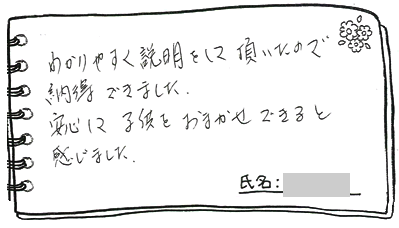 わかりやすく説明をして頂いたので
納得できました.
安心して子供をおまかせできると
感じました.
氏名: